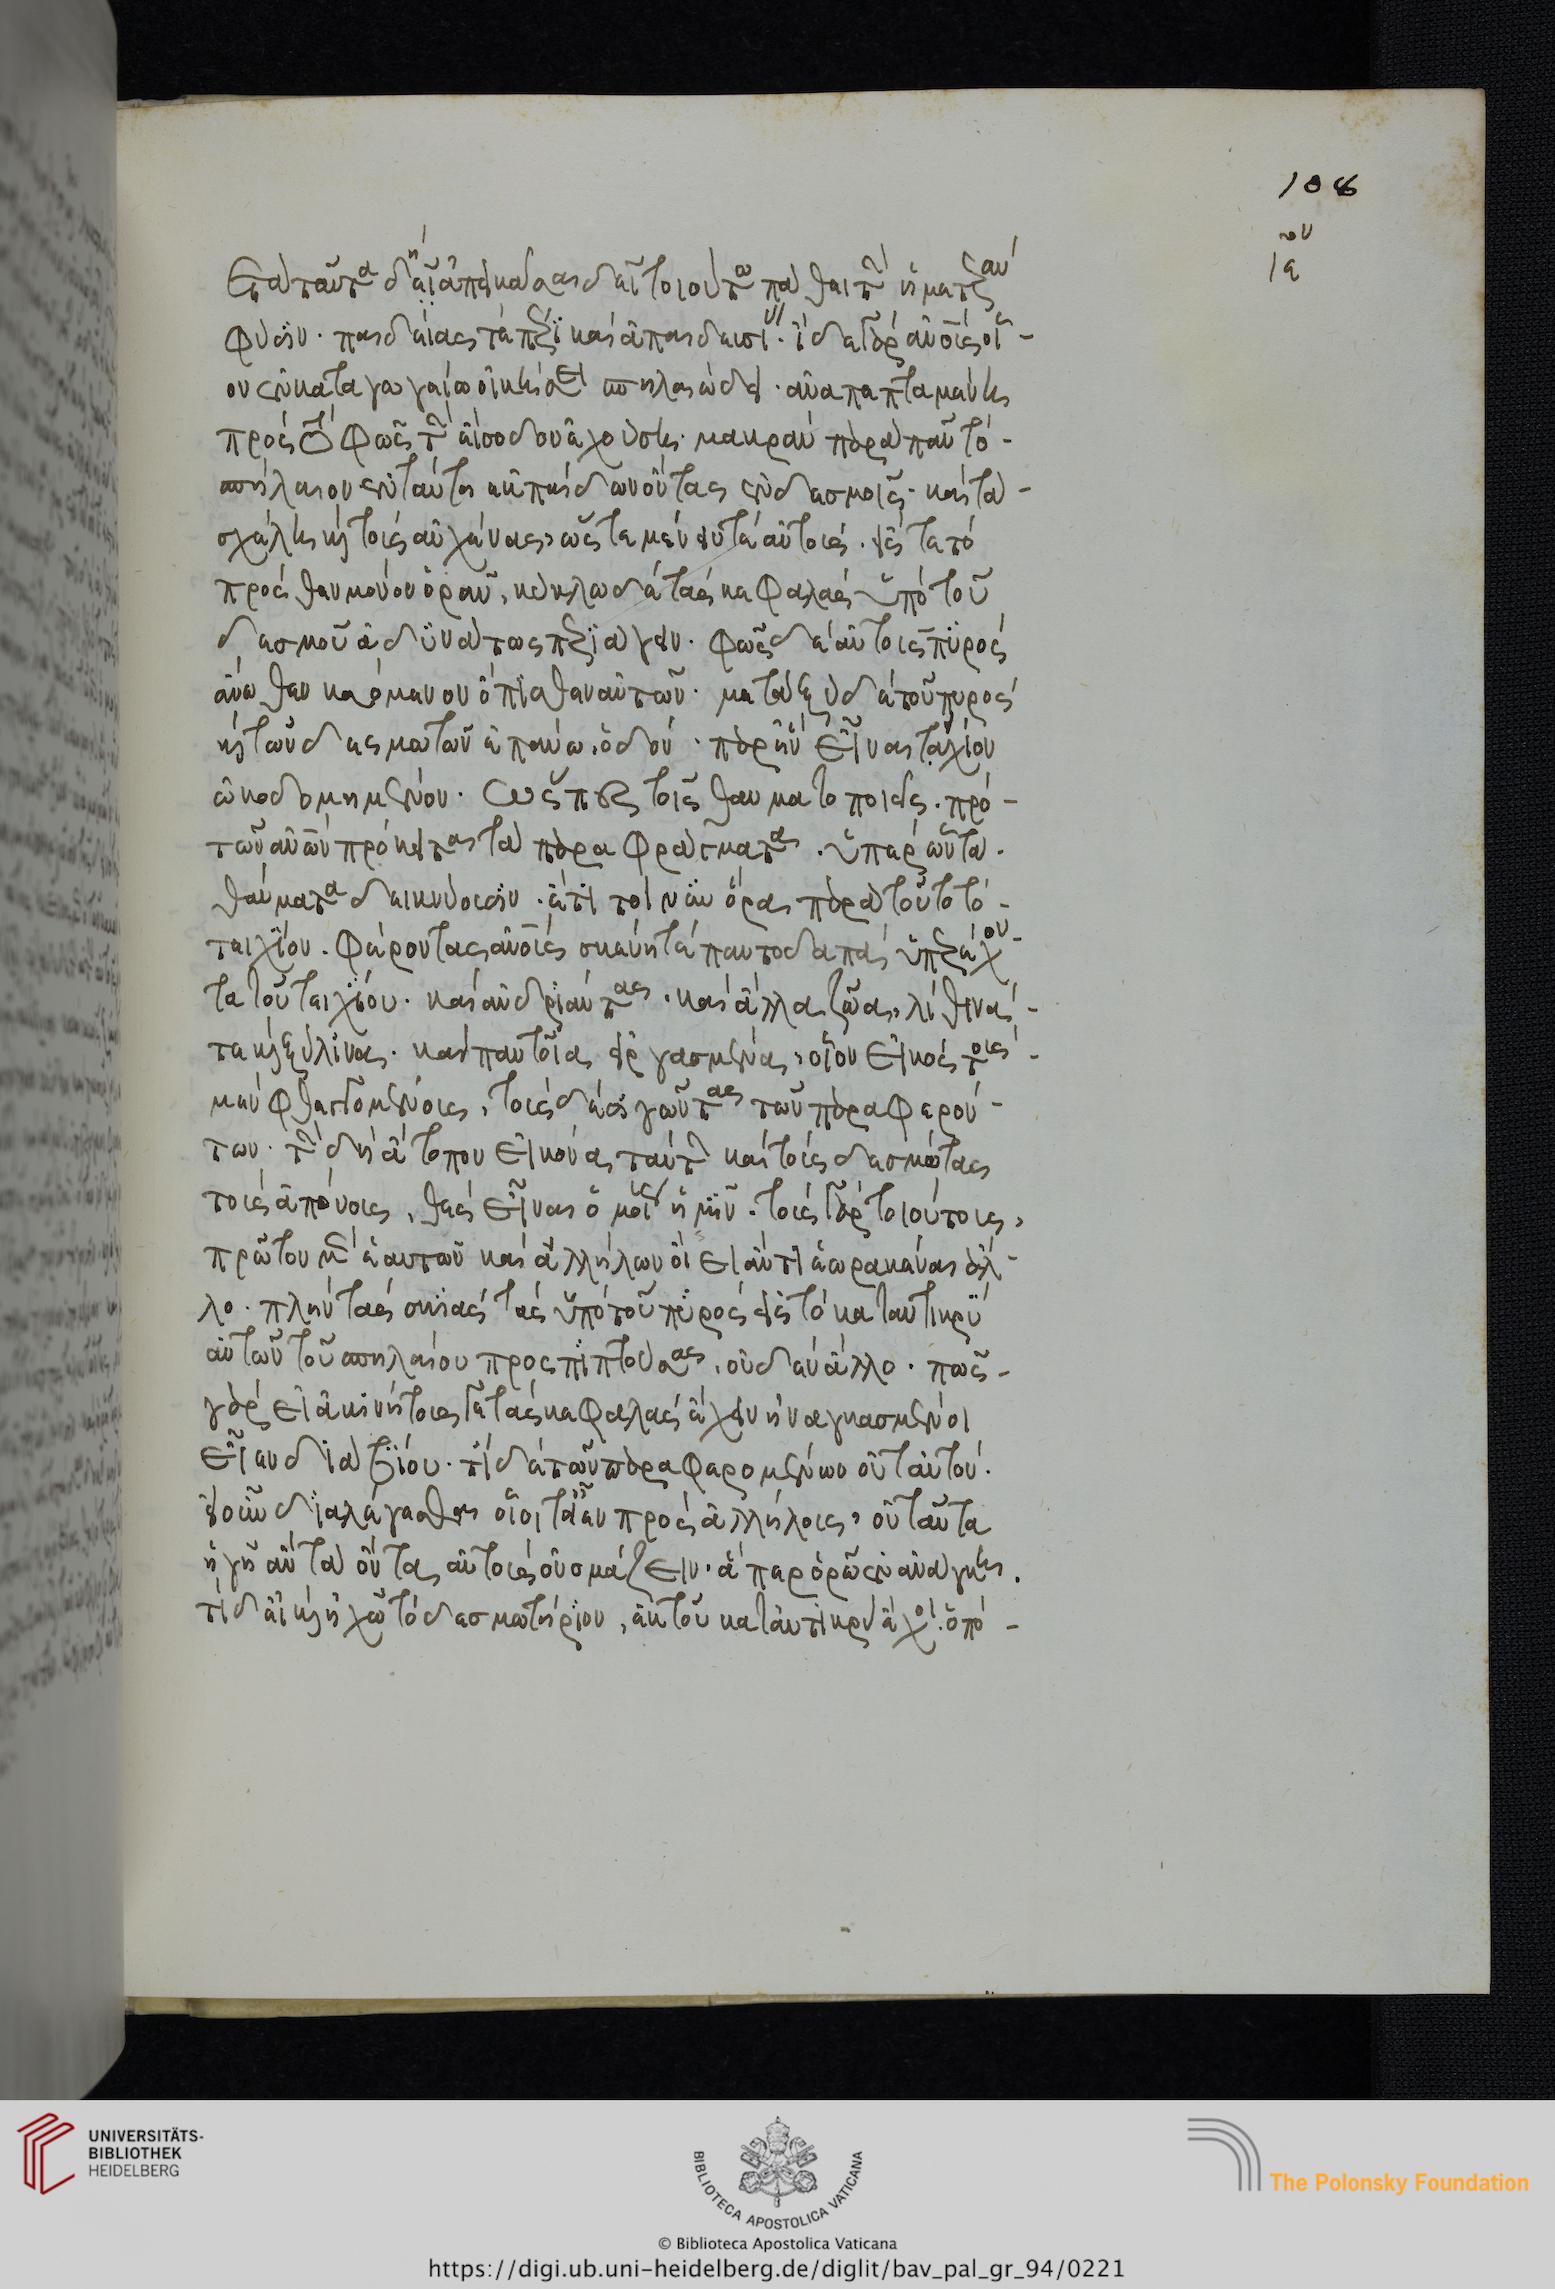 Ετὰ ταῦτα δὴ εἶ ἀπείκασαι δεῖ τοιούτω πάθει τὴν ἡμετέραν
φύσιν· παιδείας τὲ πέρι καὶ ἀπαιδευσίας· ἴδε γὰρ ἀνους οἷ-
ον ἐν καταγωγαίω οἰκήσει σπηλαιώδει· ἀναπεπταμένην
πρὸς τὸ φῶς τὴν εἴσοδον ἐχούση· μακρὰν παρὰ πᾶν τὸ-
σπήλαιον ἐν ταύτη ἐκ παίδων ὄντας ἐν δεσμοῖς· καὶ τὰ-
σκέλη καὶ τοὺς αὐχένας, ὥστε μένειν τὲ αὐτοὺς· εἴς τε τὸ
πρόσθεν μόνον ὁρᾶν, κύκλω δὲ τὰς κεφαλὰς ὑπὸ τοῦ
δεσμοῦ ἀδυνάτως περιάγειν· φῶς δὲ αὐτοῖς πυρὸς
ἄνωθεν καόμενον ὄπισθεν αὐτῶν· μεταξὺ δὲ τοῦ πυρὸς
καὶ τῶν δεσμωτῶν ἐπάνω, ὁδόν· παρ' ἣν εἶναι τειχίον
ὠκοδομημένον· ὥσπερ τοῖς θαυματοποιοῖς· πρὸ-
τῶν ἀνῶν πρόκειται τὰ παραφράγματα· ὑπὲρ ὧν τὰ·
θαύματα δεικνύουσιν· ἔτι τοίνυν ὅρα παρὰ τοῦτο τὸ-
τειχίον· φέροντας ἀνους σκεύη τὲ παντοδαπὰ ὑπερέχον-
τα τοῦ τειχίου· καὶ ἀνδριάντας· καὶ ἄλλα ζῶα, λίθινά-
τε καὶ ξύλινα· καὶ παντοῖα εἰργασμένα, οἷον εἰκὸς τοὺς-
μὲν φθεγγομένους, τοὺς δὲ σιγῶντας τῶν παραφερόν-
των· τὴν δὴ ἄτοπον εἰκόνα ταύτην καὶ τοὺς δεσμώτας
τοὺς ἀτόπους, θὲς εἶναι ὁμοίους ἡμῖν· τοὺς γὰρ τοιούτους,
πρῶτον μὲν ἑαυτῶν καὶ ἀλλήλων οἴει ἄντι ἑωρακέναι ἄλ-
λο· πλὴν τὰς σκιὰς τὰς ὑπὸ τοῦ πυρὸς εἰς τὸ καταντικρὺ
αὐτῶν τοῦ σπηλαίου προσπιπτούσας, οὐδὲν ἄλλο· πῶς-
γὰρ εἰ ἀκινήτους γε τὰς κεφαλὰς ἔχειν ἠναγκασμένοι
εἶεν διὰ βίου· τί δὲ τῶν παραφερομένων οὐ ταὐτόν·
εἰ οὖν διαλέγεσθαι οἷοι τ' εἶεν πρὸς ἀλλήλους, οὐ ταῦτα
ἡγῆ αὐτὰ ὄντα αὐτοὺς ὀνομάζειν· ἅπερ ὁρῶεν ἀνάγκη·
τί δ' εἰ καὶ ἠχὼ τὸ δεσμωτήριον, ἐκ τοῦ καταντικρὺ ἔχοι· ὁπό-